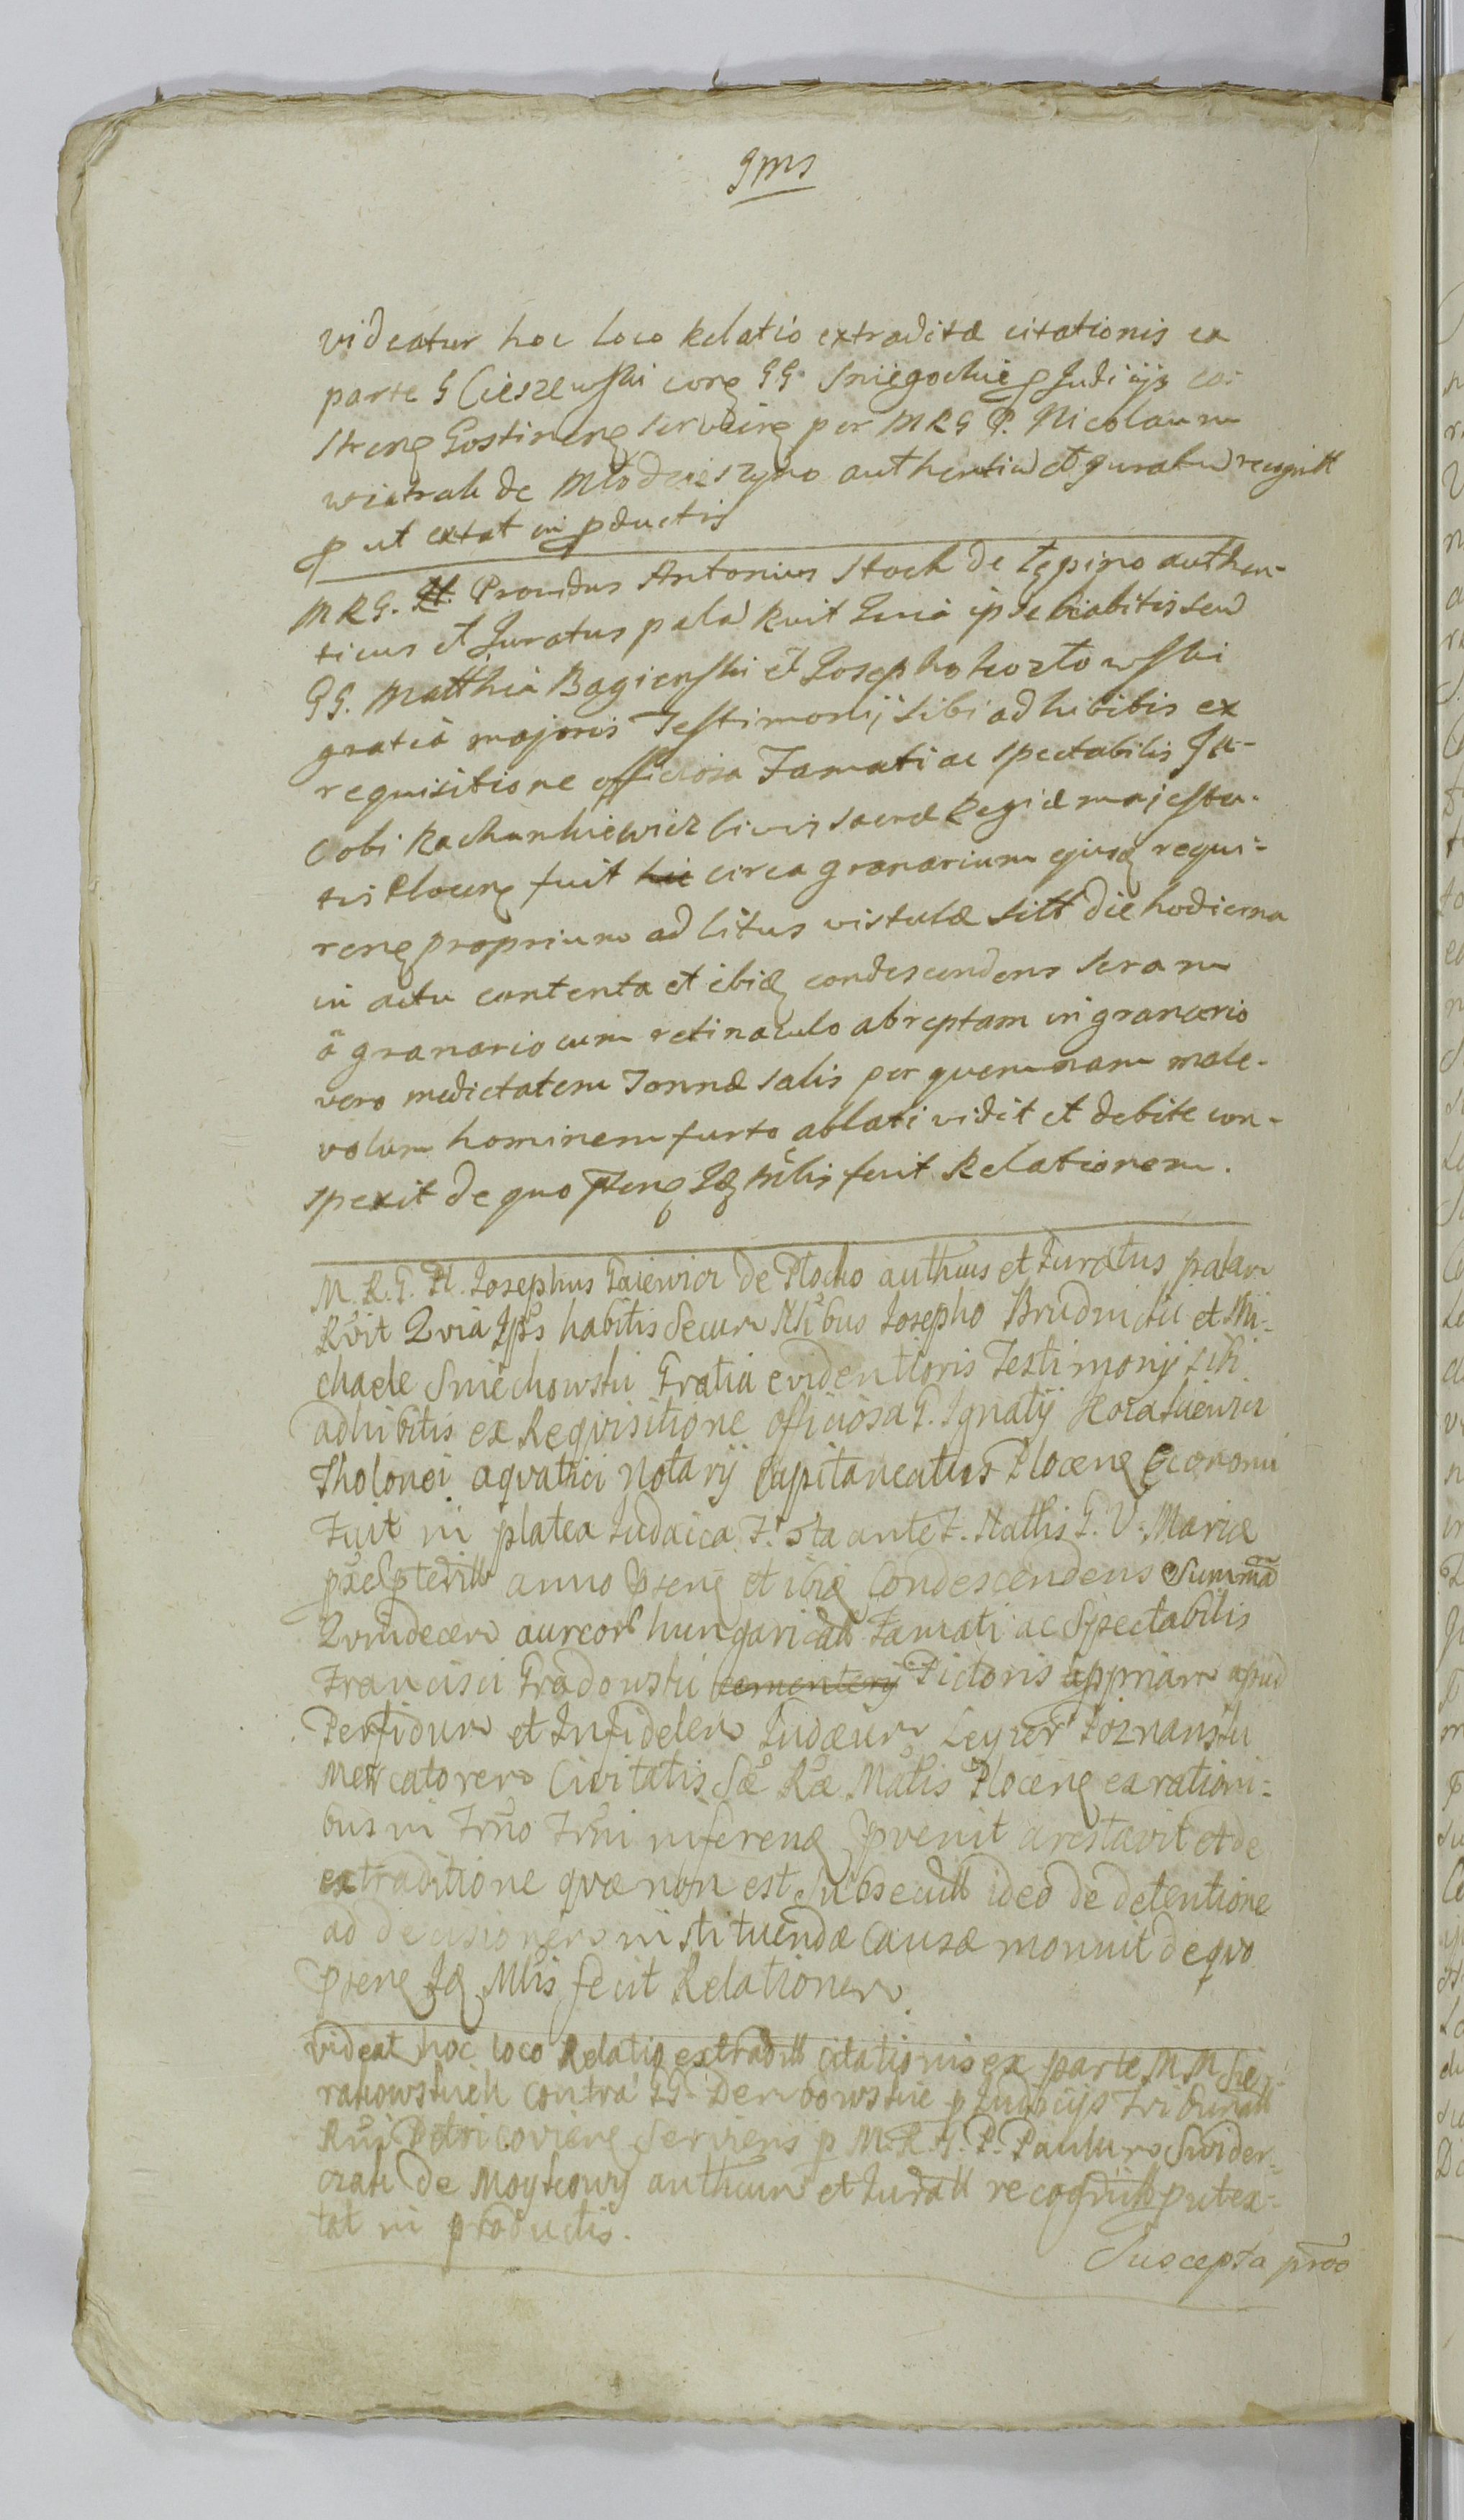 videatur hoc loco Relatio extraditæ citationis ex
parte G Cieszewski cor GG Sniegockie p Judicijs ca-
stren Gostinen servien per MRG P. Nicolaum
wietrak de Młodzieszyno authenticũ et Juratũ recognitt
p ut extat in pductis
MRG. Providus Antonius Stoch de Łępino authen-
ticus et Juratus palã Rvit Quia ipse habitis secũ
GG. Matthia Bagienski et Josepho kozłowski
gratia majoris Testimonij sibi adhibitis ex
requisitione officiosa Famati ac spectabilis Ja-
cobi Kachankiewicz Civis Sacræ Regiæ majesta-
tis Plocen fuit hic circa granarium ejusq requi-
ren proprium ad litus vistulæ sitt die hodierna
in actu contenta et ibiq condescendens seram
à granario cum retinaculo abreptam in granario
vero medietatem Tonnæ salis per quemnam male-
volum hominem furto ablati vidit et debite con-
spexit de quo psens Idq Mlis fecit Relationem.
M. R. G. Pt. Josephus Gaiewicz de Plocko authcus et Juratus palam
Rvit Qvia Ips habitis Secum Nlibus Josepho Brudnicki et Mi-
chaele Sniechowski Gratia evidentioris Testimonij sibi
adhibitis ex Reqvisitione officiosa G. Ignatij
Tholonei aqvatici Notarij Capitaneatus Plocen Economi
Fuit in platea Judaica F. 5ta ante F. Nattis B. V. Mariæ
anno psen et ibiq Condescendens Summã
Qvindecem aureor hungaricall Famati ac Spectabilis
Francisci Gradowski cementerij Pictoris appriam apud
Perfidum et Infidelem Judæum Leyzer Poznanski
Mercatorem Civitatis Sæ Ræ Mãtis Plocen ex rationi-
bus in Trño Trñi inferen pvenit arestavit et de
extraditione qvæ non est Subsecutt ideo de detentione
ad decisionem instituendæ Causæ monuit de qvo
psens Idq Mlis fecit Relationem.
videat hoc loco Relatio extraditt citationis ex parte M M Sie-
rakowskich contra GG Dembowskie p Judicijs Tribunall
Rni Petricovien Serviens p M. R. G. P. Paulum Swider-
czak de Moykowy authcum et Juratt recognitt prut ex-
tat in productis.
Suscepta